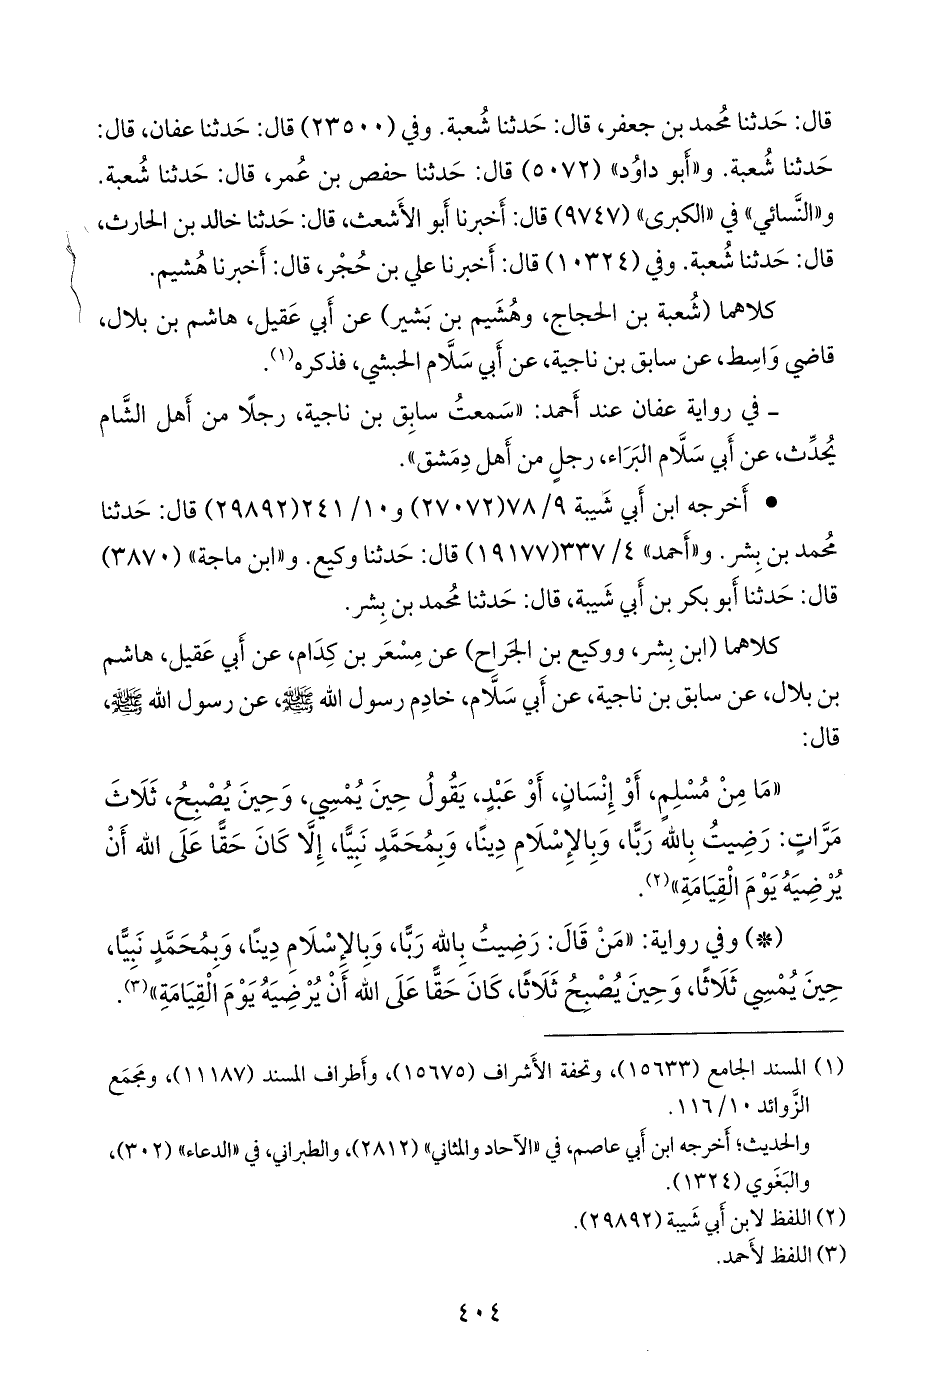 قال: حَدثنا مُحمد بن جعفر، قال: حَدثنا شُعبة. وفي (٢٣٥٠٠) قال: حَدثنا عفان، قال:
حَدثنا شُعبة. و«أَبو داوُد» (٥٠٧٢) قال: حَدثنا حفص بن عُمر، قال: حَدثنا شُعبة.
و«النَّسائي» في «الكبرى» (٩٧٤٧) قال: أَخبرنا أَبو الأَشعث، قال: حَدثنا خالد بن الحارث،
قال: حَدثنا شُعبة. وفي (١٠٣٢٤) قال: أَخبرنا علي بن حُجْر، قال: أَخبرنا هُشيم.
كلاهما (شُعبة بن الحجاج، وهُشَيم بن بَشير) عن أَبي عَقيل، هاشم بن بلال،
قاضي وَاسِط، عن سابق بن ناجية، عن أَبي سَلَّام الحبشي، فذكره(١).
ـ في رواية عفان عند أَحمد: «سَمعتُ سابِق بن ناجية، رجلًا من أَهل الشَّام
يُحدِّث، عن أَبي سَلَّام البَرَاء، رجلٍ من أَهل دِمَشق».
• أَخرجه ابن أَبي شَيبة ٩/ ٧٨(٢٧٠٧٢) و١٠/ ٢٤١(٢٩٨٩٢) قال: حَدثنا
مُحمد بن بِشر. و«أَحمد» ٤/ ٣٣٧(١٩١٧٧) قال: حَدثنا وكيع. و«ابن ماجة» (٣٨٧٠)
قال: حَدثنا أَبو بكر بن أَبي شَيبة، قال: حَدثنا مُحمد بن بِشر.
كلاهما (ابن بِشر، ووكيع بن الجَراح) عن مِسْعَر بن كِدَام، عن أَبي عَقيل، هاشم
بن بلال، عن سابق بن ناجية، عن أَبي سَلَّام، خادِم رسول الله ﷺ، عن رسول الله ﷺ،
قال:
«مَا مِنْ مُسْلِمٍ، أَوْ إِنْسَانٍ، أَوْ عَبْدٍ، يَقُولُ حِينَ يُمْسِي، وَحِينَ يُصْبِحُ، ثَلَاثَ
مَرَّاتٍ: رَضِيتُ بِالله رَبًّا، وَبِالإِسْلَامِ دِينًا، وَبِمُحَمَّدٍ نَبِيًّا، إِلَّا كَانَ حَقًّا عَلَى الله أَنْ
يُرْضِيَهُ يَوْمَ الْقِيَامَةِ»(٢).
(*) وفي رواية: «مَنْ قَالَ: رَضِيتُ بِالله رَبًّا، وَبِالإِسْلَامِ دِينًا، وَبِمُحَمَّدٍ نَبِيًّا،
حِينَ يُمْسِي ثَلَاثًا، وَحِينَ يُصْبِحُ ثَلَاثًا، كَانَ حَقًّا عَلَى الله أَنْ يُرْضِيَهُ يَوْمَ الْقِيَامَةِ»(٣).
(١) المسند الجامع (١٥٦٣٣)، وتحفة الأَشراف (١٥٦٧٥)، وأَطراف المسند (١١١٨٧)، ومَجمَع
الزَّوائد ١٠/ ١١٦.
والحديث؛ أَخرجه ابن أَبي عاصم، في «الآحاد والمثاني» (٢٨١٢)، والطبراني، في «الدعاء» (٣٠٢)،
والبَغَوي (١٣٢٤).
(٢) اللفظ لابن أَبي شَيبة (٢٩٨٩٢).
(٣) اللفظ لأَحمد.
٤٠٤